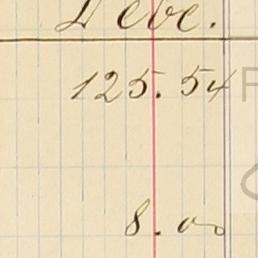 Debe.
125.54
8.00